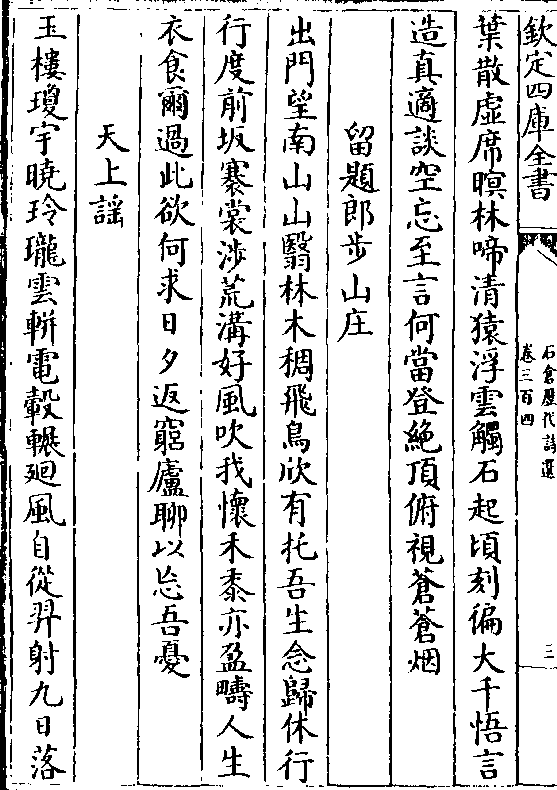 欽定四庫全書
石倉歷代詩選
卷三百四
三
葉散虛席暝林啼清猿浮雲觸石起頃刻徧大千悟言
造真適談空忘至言何當登絕頂俯視蒼蒼烟
留題郎步山庄
出門望南山山翳林木稠飛鳥欣有托吾生念歸休行
行度前坂褰裳涉荒溝好風吹我懷禾黍亦盈疇人生
衣食爾過此欲何求日夕返窮廬聊以忘吾憂
天上謡
玉樓瓊宇曉玲瓏雲輧電轂輾廻風自從羿射九日落